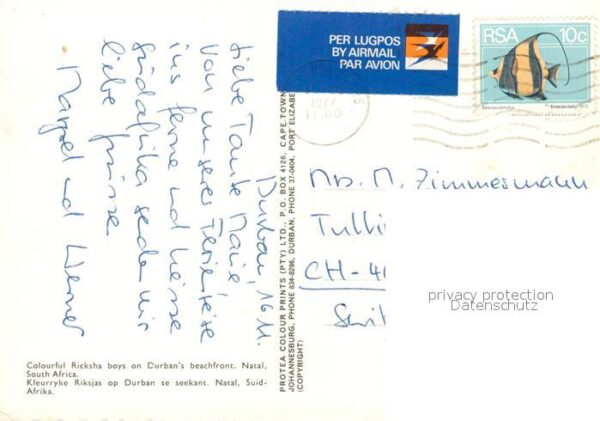 PER LUGPOS
BY AIRMAIL
PAR AVION
RSA 10c
Zanclus canescens
1977
Durban, 16.11.
Liebe Tante Marie!
Von unserer Ferienreise
ins ferne und heisse
Südafrika senden wir
liebe Grüsse
Margot und Werner
Mrs. M. Zimmermann
Tulli
CH-4
Swit
privacy protection
Datenschutz
PROTEA COLOUR PRINTS (PTY) LTD., P.O. BOX 4126, CAPE TOWN
JOHANNESBURG, PHONE 834-8296, DURBAN, PHONE 37-0404, PORT ELIZABE
(COPYRIGHT)
Colourful Ricksha boys on Durban's beachfront. Natal,
South Africa.
Kleurryke Riksjas op Durban se seekant. Natal, Suid-
Afrika.